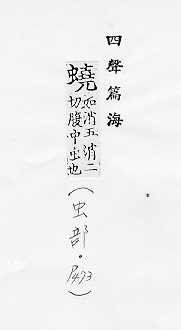 四聲篇海
蟯 如消五消二
切腹中虫也
(虫部。P493)